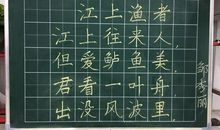 江上渔者
江上往来人，
但爱鲈鱼美。
君看一叶舟，
出没风波里。
邹秀丽